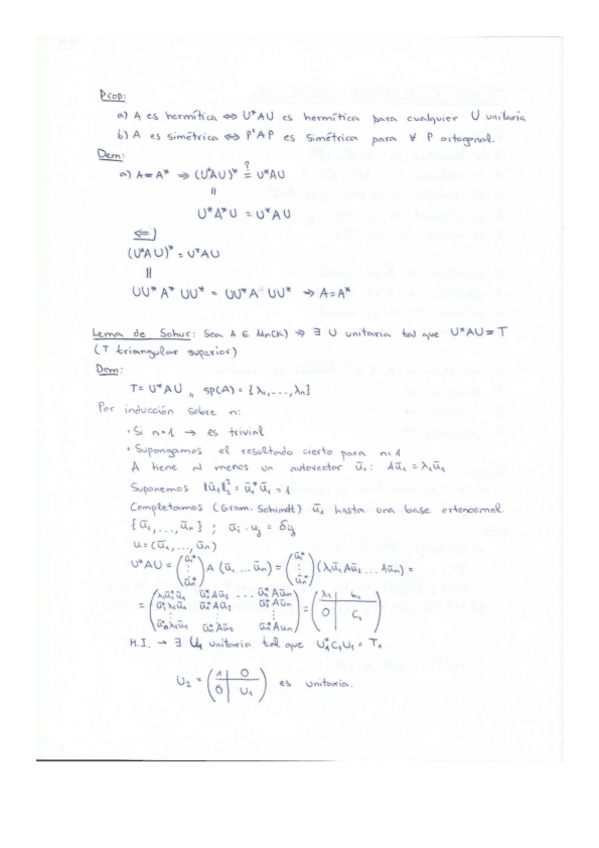 Prop:
a) A es hermítica ⇔ U*AU es hermítica para cualquier U unitaria
b) A es simétrica ⇔ PᵗAP es simétrica para ∀ P ortogonal.
Dem:
a) A = A* ⇒ (U*AU)* ≟ U*AU
||
U*A*U = U*AU
⇐)
(U*AU)* = U*AU
||
UU*A*UU* = UU*A UU* ⇒ A = A*
Lema de Schur: Sea A ∈ Mn(K) ⇒ ∃ U unitaria tal que U*AU = T
(T triangular superior)
Dem:
T = U*AU, sp(A) = {λ₁,...,λn}
Por inducción sobre n:
· Si n=1 → es trivial
· Supongamos el resultado cierto para n=1
A tiene al menos un autovector ū₁: Aū₁ = λ₁ū₁
Suponemos ‖ū₁‖₂² = ū₁*ū₁ = 1
Completamos (Gram-Schimdt) ū₁ hasta una base ortonormal
{ū₁,...,ūn} ; ūi · uj = δij
u = (ū₁,...,ūn)
U*AU = (ū₁* ⋮ ūn*) A (ū₁ ... ūn) = (ū₁* ⋮ ūn*) (λ₁ū₁ Aū₂ ... Aūn) =
= (λ₁ū₁*ū₁ ū₁*Aū₂ ... ū₁*Aūn
ū₂*λ₁ū₁ ū₂*Aū₂ ū₂*Aūn
⋮ ⋮ ⋮
ūn*λ₁ū₁ ūn*Aū₂ ūn*Aūn) = (λ₁ | L₁ / 0 | C₁)
H.I. → ∃ U₁ unitaria tal que U₁*C₁U₁ = T₁
U₂ = (1 | 0 / 0 | U₁) es unitaria.